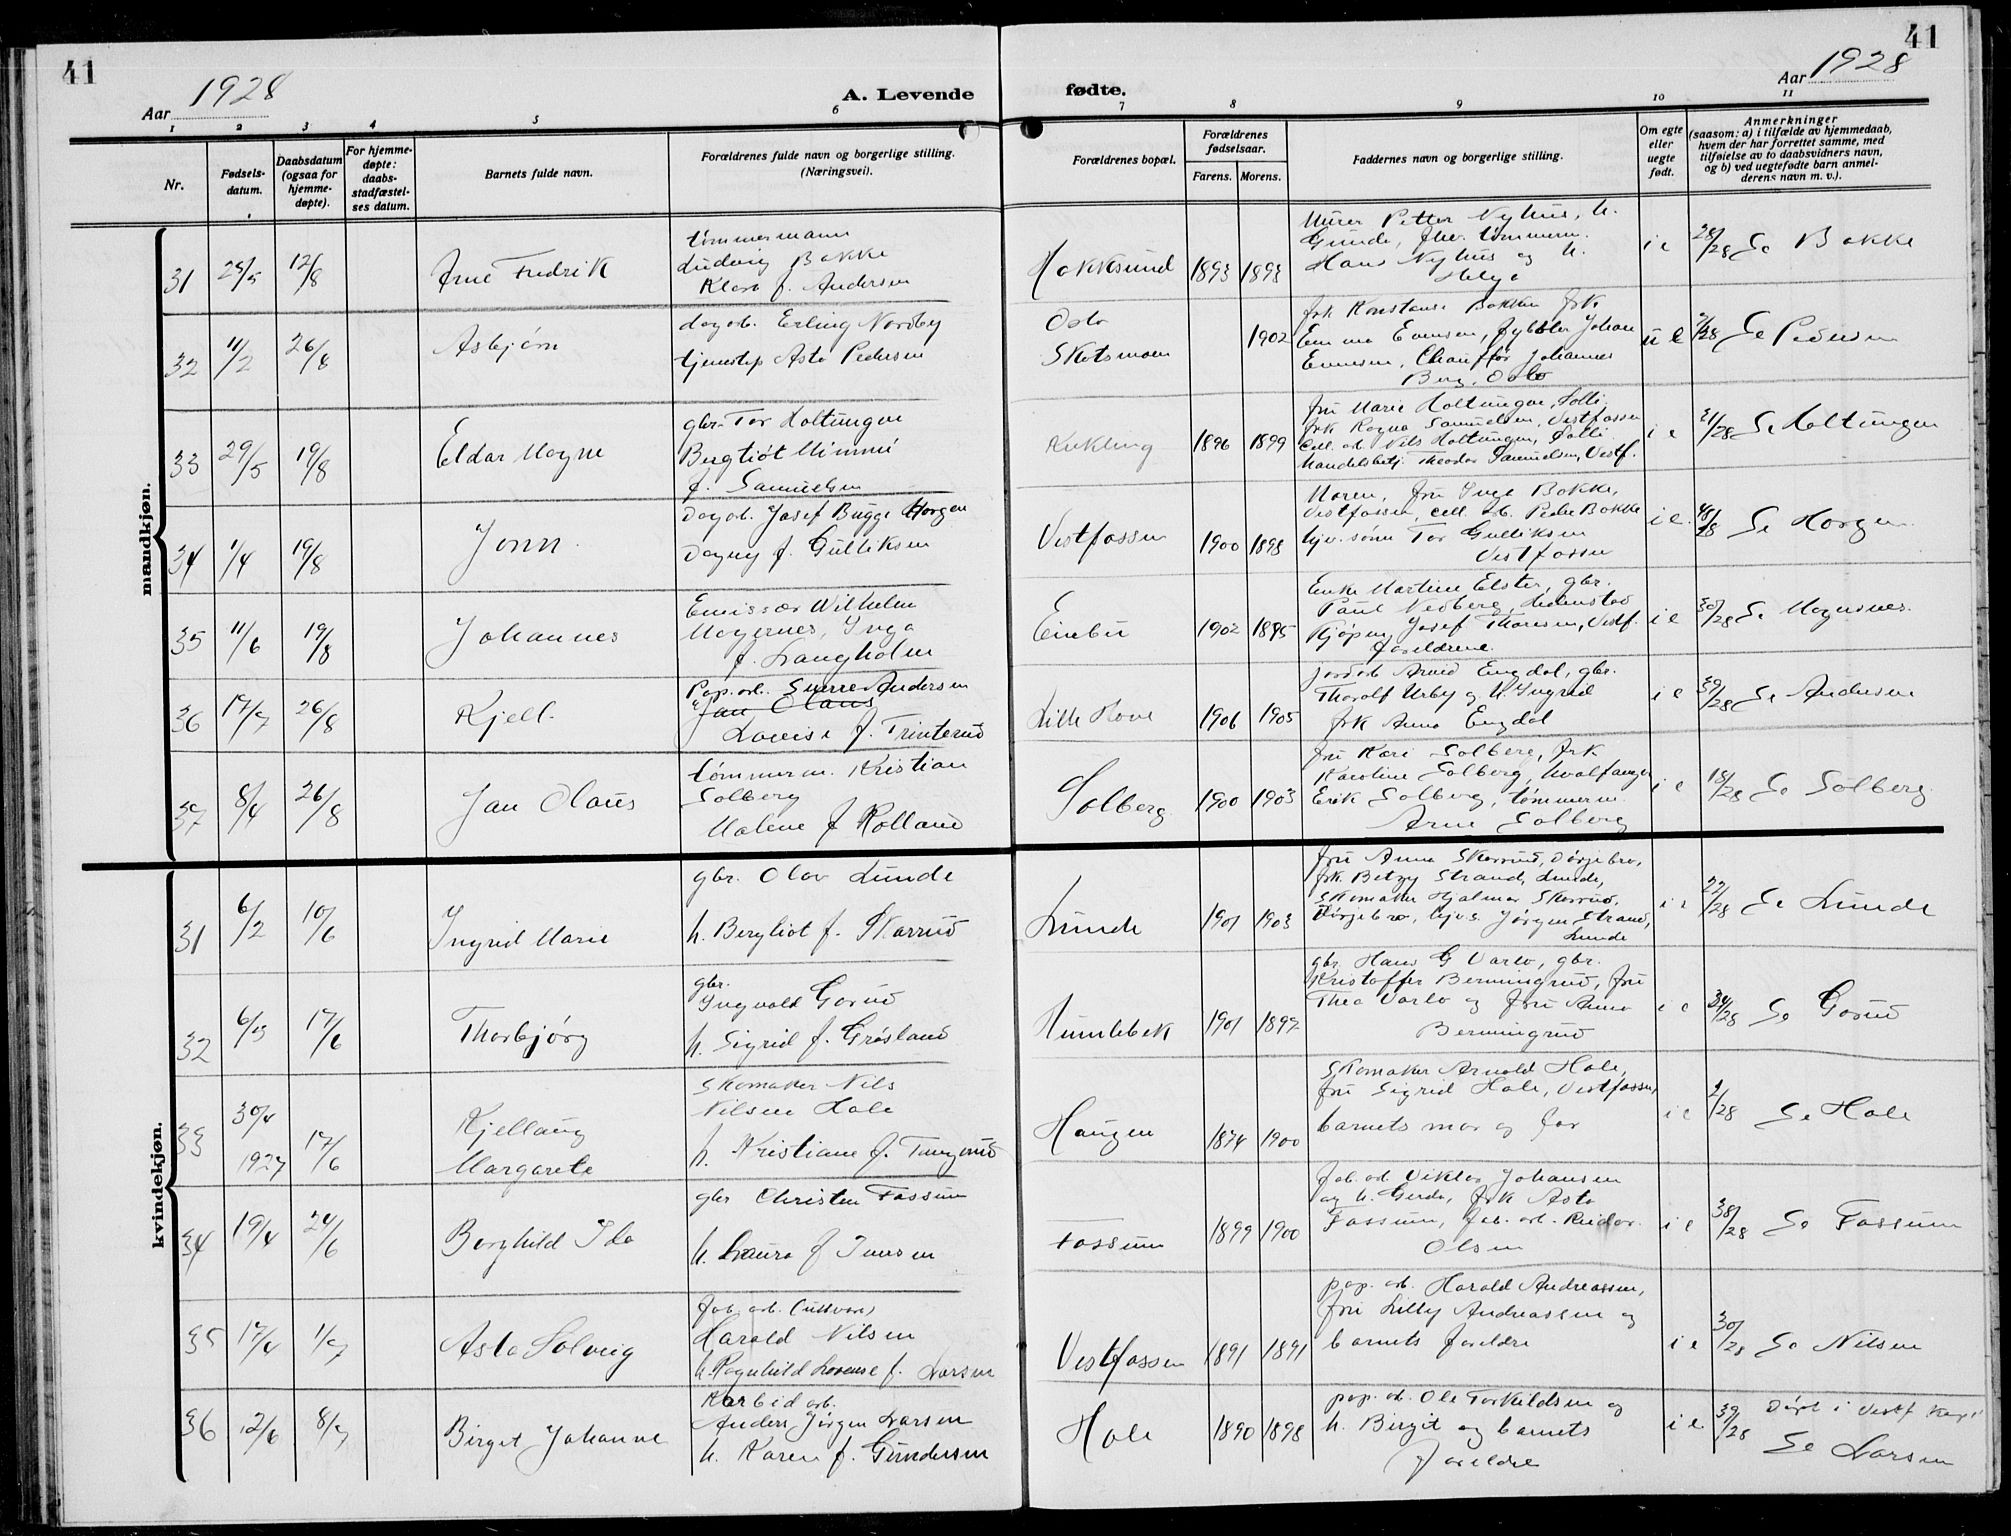 41
Aar 1928
A. Levende
fødte.
Aar 1928
41
1 2 3 4 5 6 7 8 9 10 11
Nr.
Fødsels-
datum.
Daabsdatum
(ogsaa for
hjemme-
døpte).
For hjemme-
døpte:
daabs-
stadfæstel-
ses datum.
Barnets fulde navn.
Forældrenes fulde navn og borgerlige stilling.
(Næringsvei).
Forældrenes bopæl.
Forældrenes
fødselsaar.
Farens. Morens.
Faddernes navn og borgerlige stilling.
Om egte
eller
uegte
født.
Anmerkninger
(saasom: a) i tilfælde av hjemmedaab,
hvem der har forrettet samme, med
tilføielse av to daabsvidners navn,
og b) ved uegtefødte barn anmel-
derens navn m. v.).
mandkjøn.
31 25/5 12/8 Arne Fredrik
tømmermann
Ludvig Bakke
Klara f. Andersen
Hokksund 1893 1893
Murer Petter Nyhus, h.
Gunda, fhv. tømmerm.
Hans Nyhus og h.
Helga
i e 28/28 Se Bakke
32 11/2 26/8 Asbjørn
dagarb. Erling Nordby
tjenestep Asta Pedersen
Oslo
Skotsmoen
1902
frk Konstanse Bakken frk
Emma Evensen, Johan
Evensen, Chauffør Johannes
Berg, Oslo
u e /28 Se Pedersen
33 29/5 19/8 Eldar Magne
gbr. Tor Holtungen
Bergliót Mimmi
f. Samuelsen
1896 1899
fru Marie Holtungen, Solli
frk Ragna Samuelsen, Vestfossen
Cell. arb. Nils Holtungen, Solli
Handelsbetj. Theodor Samuelsen, Vestf.
i e 31/28 Se Holtungen
34 1/4 19/8 Jonn.
Dagarb. Josef Bugge Horgen
Dagny f. Gulliksen
Vestfossen 1900 1898
Moren, fru Inga Bakke,
Vestfossen, cell. arb. Peder Bakke
hjv. sønn Tor Gulliksen
Vestfossen
i e. 48/28 Se Horgen
35 11/6 19/8 Johannes
Emissær Wilhelm
Magernes, Inga
f. Langholm
Eiebu 1902 1895
Enke Martine Elster, gbr.
Paul Nedberg,
Kjøpm Josef Thoresen, Vestf.
foreldrene.
i e 30/28 Se Magernes.
36 17/7 26/8 Kjell.
Pap. arb. Sverre Andersen
Jan Olaus
Lovise f. Trinterud
Lille Hove 1906 1905
jordarb Arvid Engdal, gbr.
Thorolf Urby og h. Ingrid
frk Anna Engdal
i e 39/28 Se Andersen
37 8/4 26/8 Jan Olaus
tømmerm. Kristian
Solberg
Malene f Rolland
Solberg 1900 1903
fru Kari Solberg, frk
Karoline Solberg, hvalfanger
Erik Solberg, tømmerm.
Arne Solberg
i e 18/28 Se Solberg
kvindekjøn.
31 6/2 10/6 Ingrid Marie
gbr. Olav Lunde
h. Bergliot f. Skarrud
Lunde 1901 1903
fru Anna Skarrud, Dørjebro,
frk. Betzy Strand, Lunde,
Skomaker Hjalmar Skarrud,
Dørjebro, hjv.s. Jørgen Strand,
Lunde
i e 22/28 Se Lunde
32 6/3 17/6 Thorbjørg
gbr.
Ingvald Gorud
h. Sigrid f. Grøsland
Humlebek 1901 1897
gbr. Hans G Varlo, gbr.
Kristoffer Bermingrud, fru
Thea Varlo og fru Anna
Bermingrud
i e 34/28 Se Gorud
33 30/4
1927 17/6 Kjellaug
Margarete
Skomaker Nils
Nilsen Hole
h. Kristiane f. Tungerud
Haugen 1874 1900
Skomaker Arnold Hole,
fru Sigrid Hole, Vestfossen,
barnets mor og far
i e 2/28 Se Hole
34 19/4 24/6 Borghild Ida
gbr Christen Fossum
h. Laura f Jensen
Fossum 1899 1900
fab. arb. Viktor Johansen
og h. Gerda, frk Asta
Fossum, fab. arb. Reidar.
Olsen
i e 38/28 Se Fossum
35 17/4 1/7 Asta Solveig
fab. arb. (ullvare)
Harald Nilsen
h. Ragnhild Lovense f. Larsen
Vestfossen 1891 1891
pap. arb. Harald Andreassen,
fru Lilly Andreassen og
barnets foreldre
i e 30/28 Se Nilsen
36 12/6 8/7 Birget Johanne
Karbidarb.
Anders Jørgen Larsen
h. Karen f. Gundersen
Hole 1890 1898
pap. arb. Ole Torkildsen og
h. Birgit og barnets
foreldre
i e 39/28 Døpt i Vestf Kap
Se Larsen